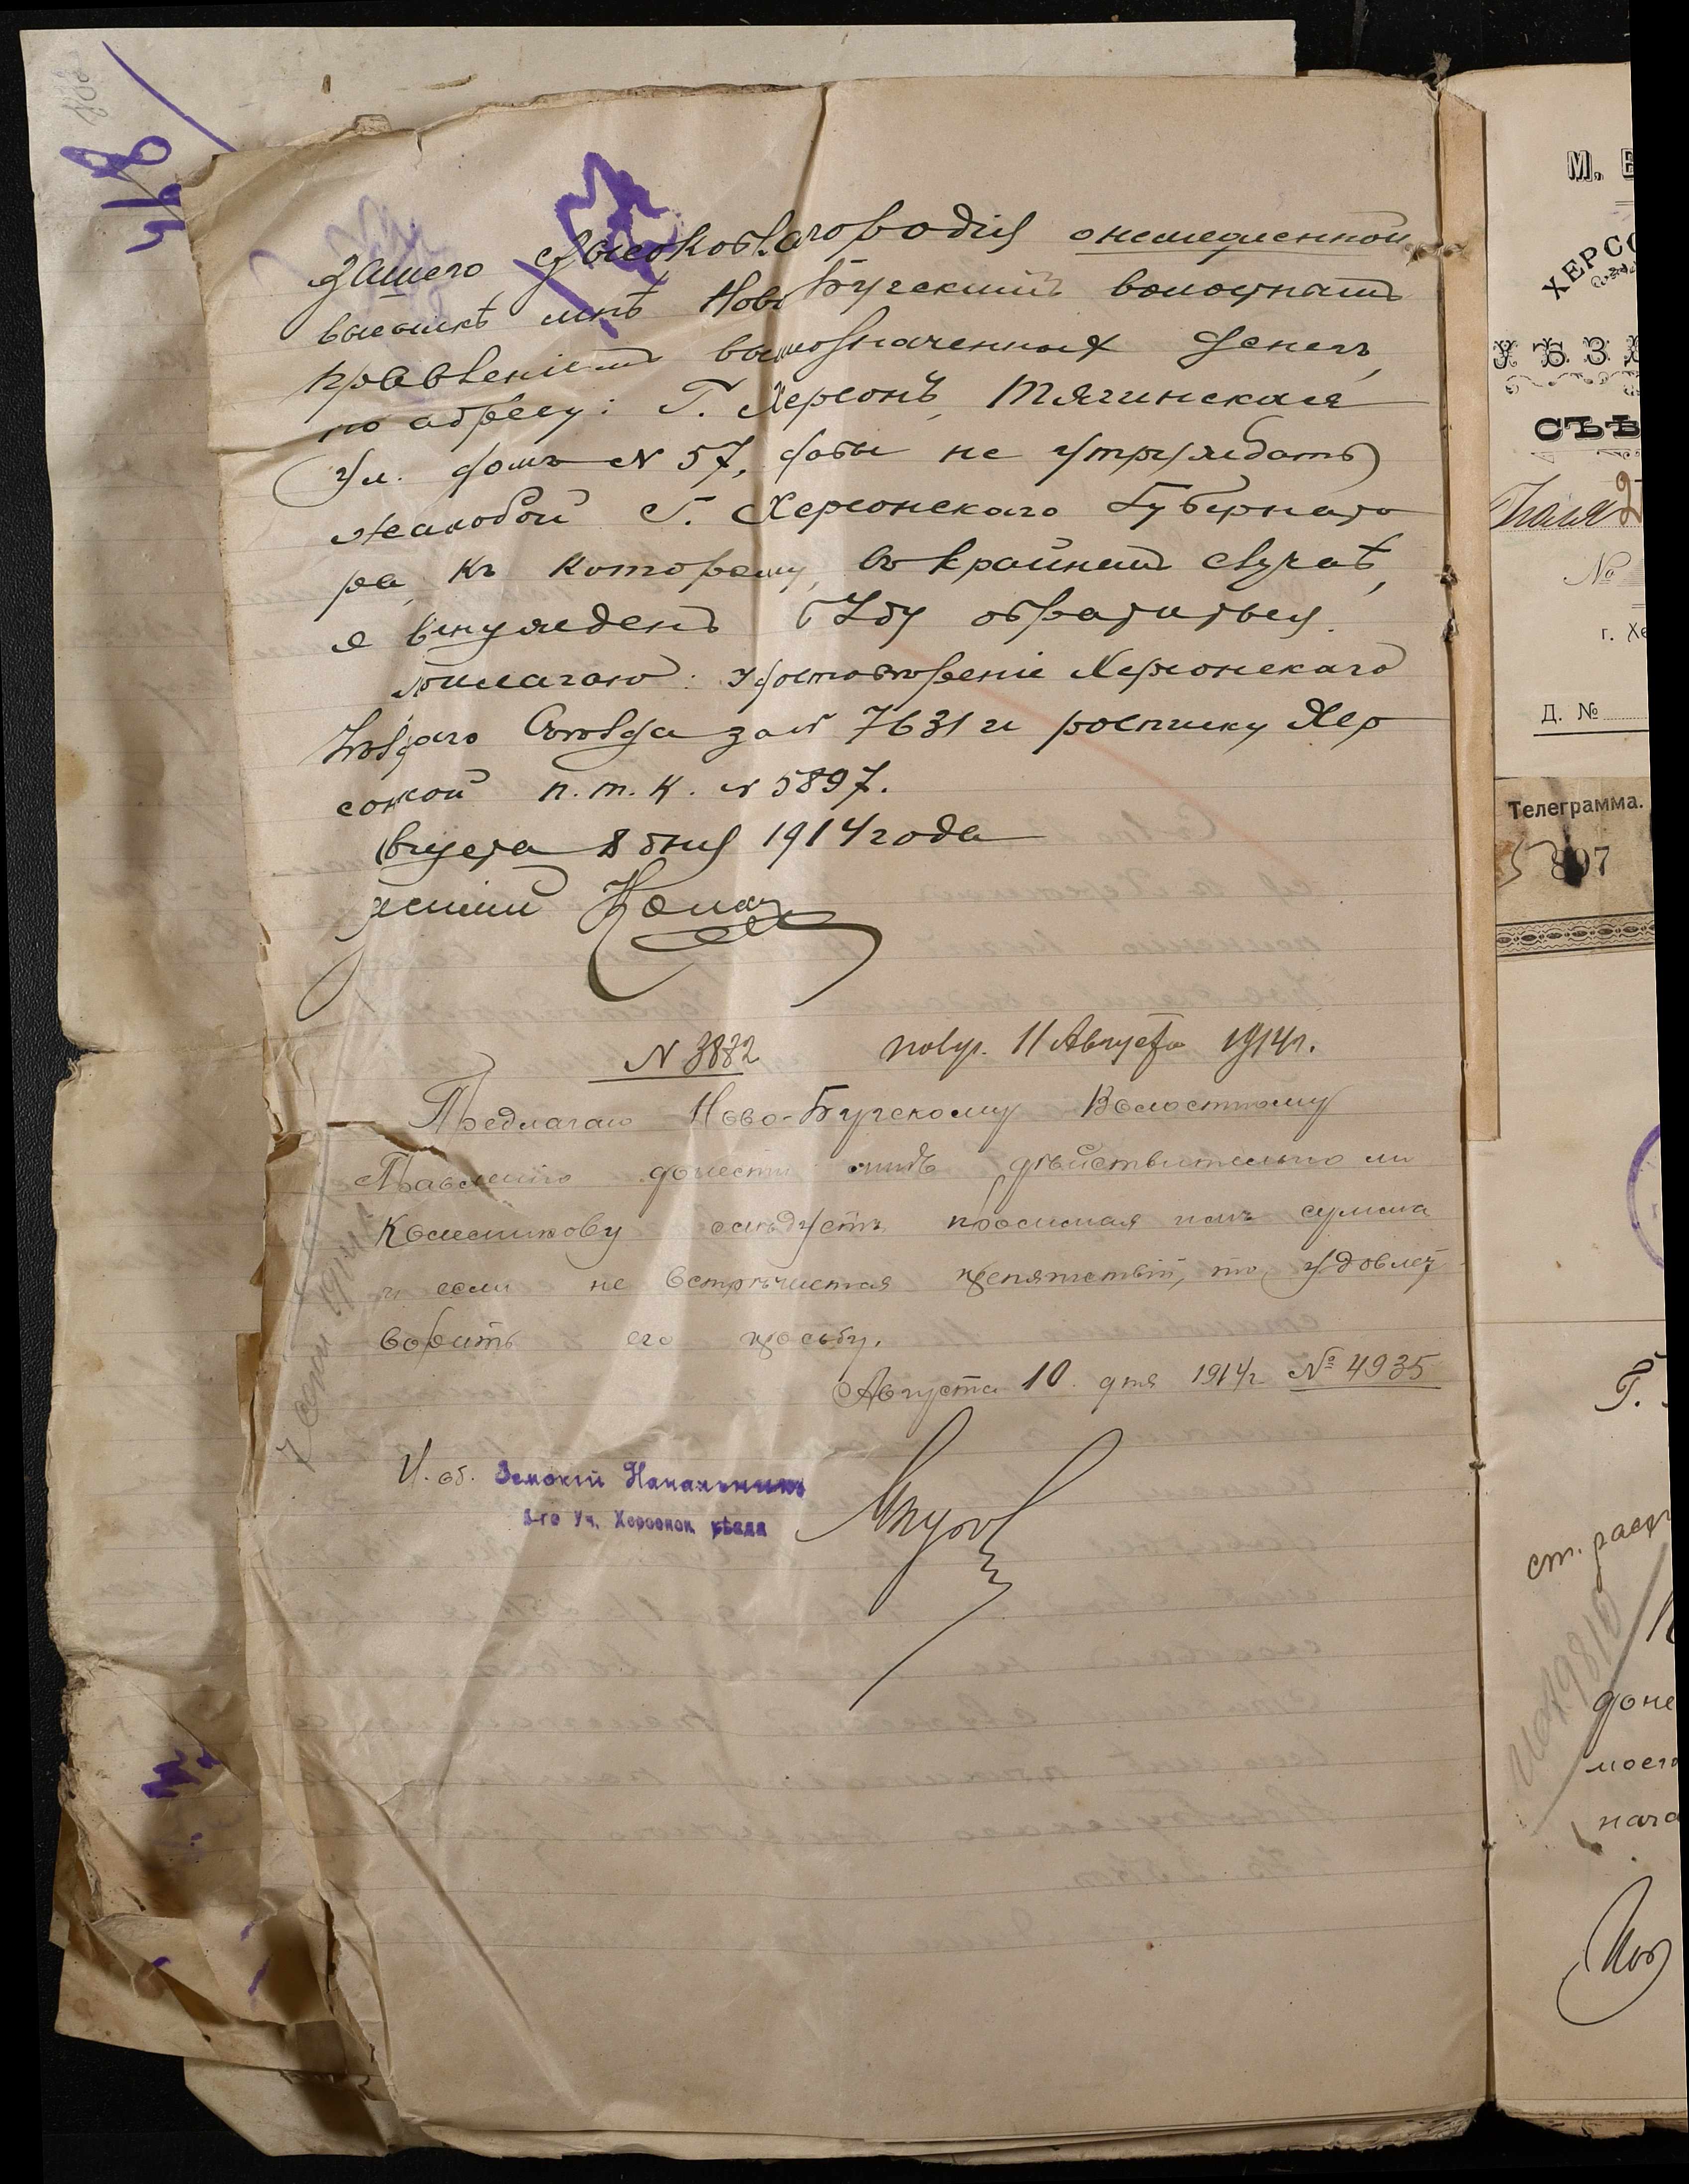 Вашего Высокоблагородия о немедленной
высылкѣ мнѣ Ново Бугскимъ волостнымъ
правленіемъ вышеозначенныхъ денегъ,
по адресу: Г. Херсонъ, Тягинская
ул. домъ № 57, дабы не утруждать
жалобой Г. Херсонскаго Губернато
ра, къ которому, въ крайнемъ случаѣ,
я вынужденъ буду обратиться.
Прилагаю: удостовѣреніе Херсонскаго
за № 7631 и росписку Хер
сонской п. т. к. № 5897.
Августа 8 дня 1914 года
№ 3882 Получ. 11 Августа 1914 г.
Предлагаю Ново-Бугскому Волостному
Правленію донести мнѣ дѣйствительно ли
Колесникову слѣдуетъ просимая имъ сумма
и если не встрѣчается препятствій, то удовлет
ворить его просьбу.
Августа 10 дня 1914 г. № 4935
И. об. Земскій Начальникъ
Уч. Херсонск. уѣзда
48
М. В
ХЕРСО
УѢЗД
СЪѢ
№
г. Хе
Д. №
Телеграмма.
897
Г.
ст.
доне
моего
нача